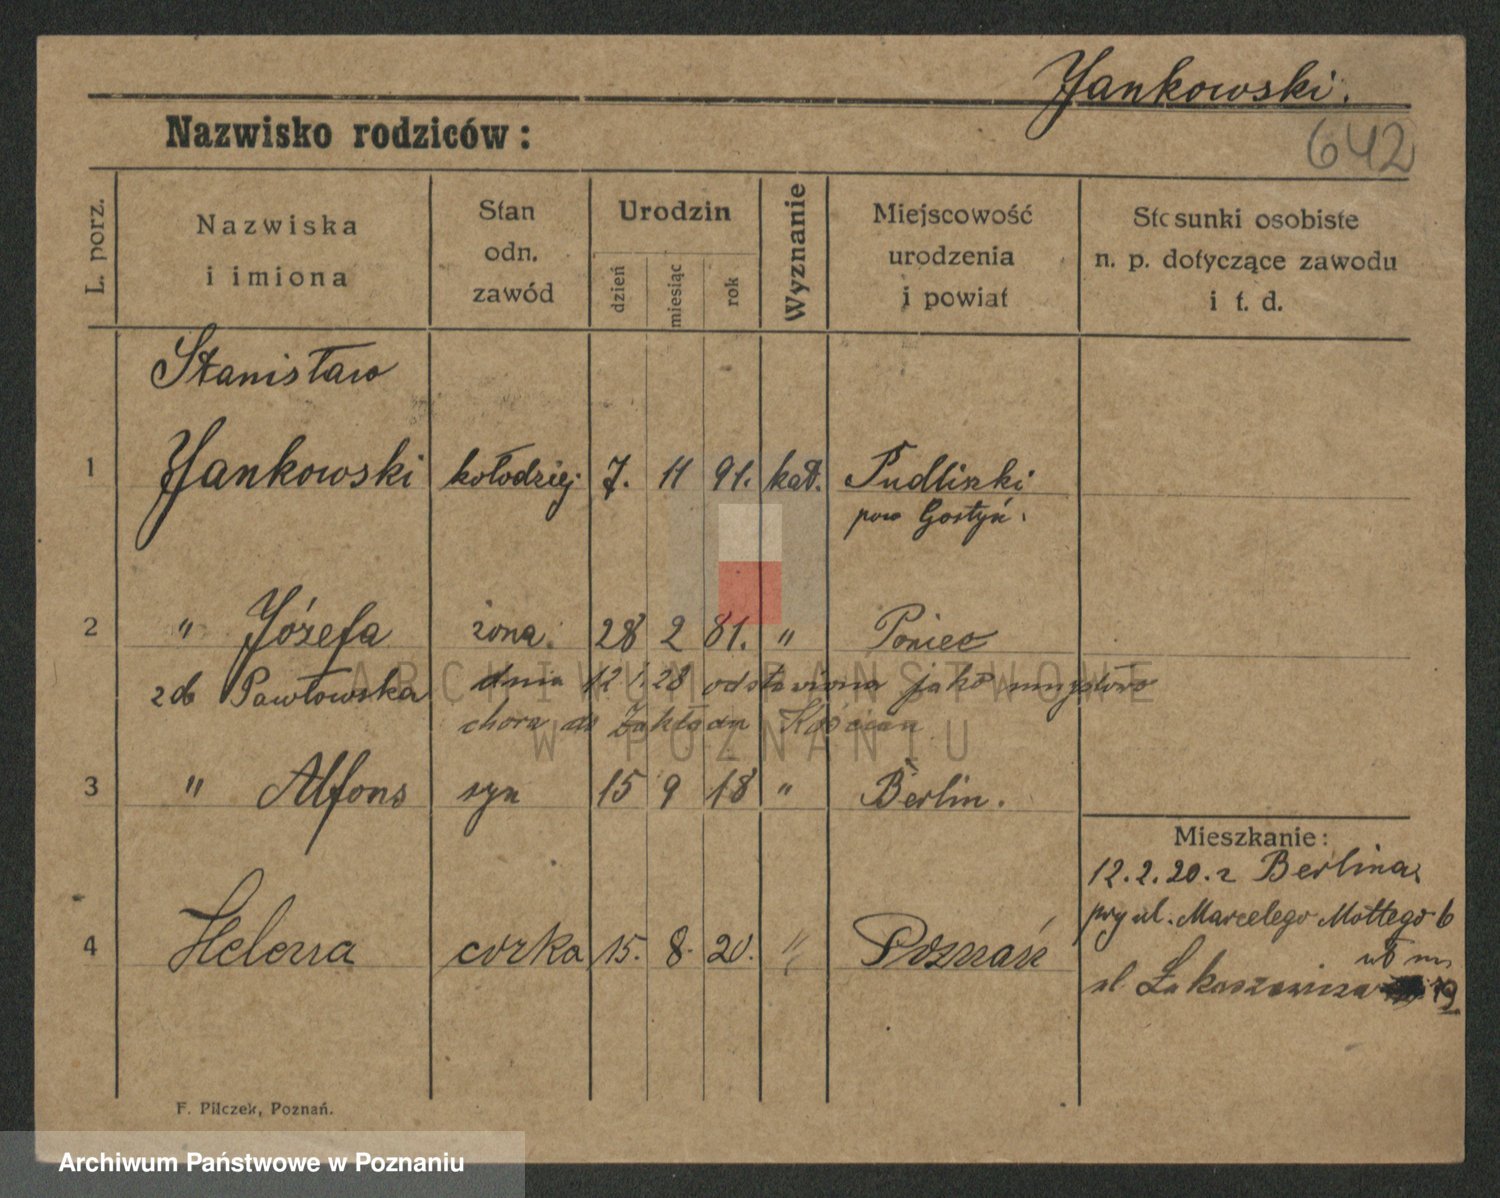 Jankowski.
642
Nazwisko rodziców:
L. porz.
Nazwiska
i imiona
Stan
odn.
zawód
Urodzin
dzień
miesiąc
rok
Wyznanie
Miejscowość
urodzenia
i powiat
Stosunki osobiste
n. p. dotyczące zawodu
i t. d.
Stanisław
1 Jankowski kołodziej 7. 11 91. kat. Pudliszki
pow Gostyń.
2 " Józefa żona. 28 2 81. " Poniec
z d. Pawłowska dnia 12 1. 28 odstawiona jako umysłowo
chora do Zakładu Kościan
3 " Alfons syn 15 9 18 " Berlin.
Mieszkanie:
12.2.20. z Berlina,
przy ul. Marcelego Mottego 6
4 Helena córka 15. 8. 20. " Poznań
ul Łukaszewicza 19
F. Pilczek, Poznań.
ARCHIWUM PAŃSTWOWE
W POZNANIU
Archiwum Państwowe w Poznaniu